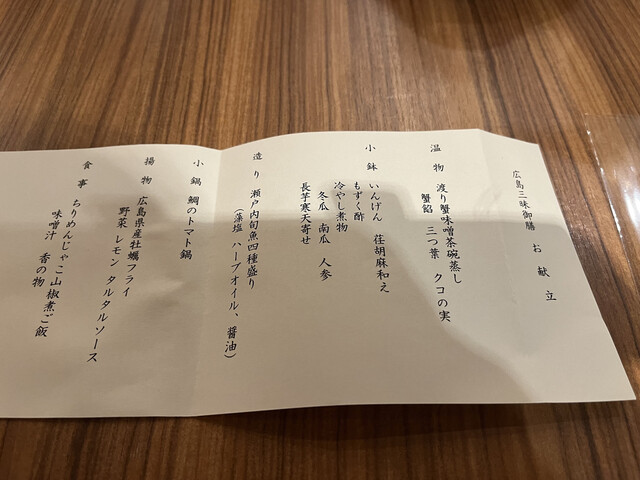 広島三昧御膳 お献立
温物 渡り蟹味噌茶碗蒸し
蟹餡 三つ葉 クコの実
小鉢 いんげん 荏胡麻和え
もずく酢
冷やし煮物
冬瓜 南瓜 人参
長芋寒天寄せ
造り 瀬戸内旬魚四種盛り
(藻塩 ハーブオイル、醤油)
小鍋 鯛のトマト鍋
揚物 広島県産牡蠣フライ
野菜 レモン タルタルソース
食事 ちりめんじゃこ山椒煮ご飯
味噌汁 香の物